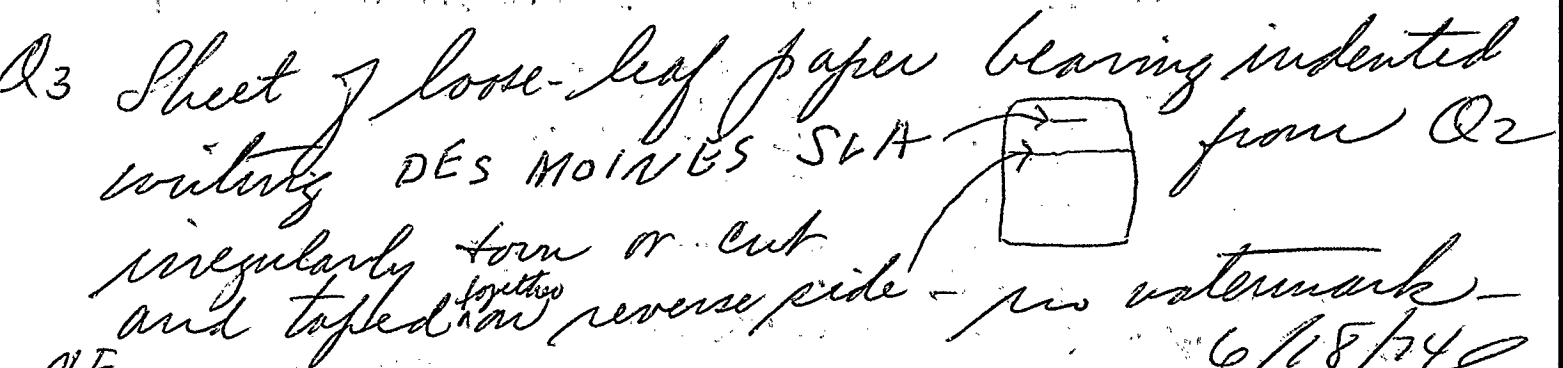 Q3 Sheet of loose-leaf paper bearing indented
writing DES MOINES SLA from Q2
irregularly torn or cut
and taped together on reverse side - no watermark -
6/18/74